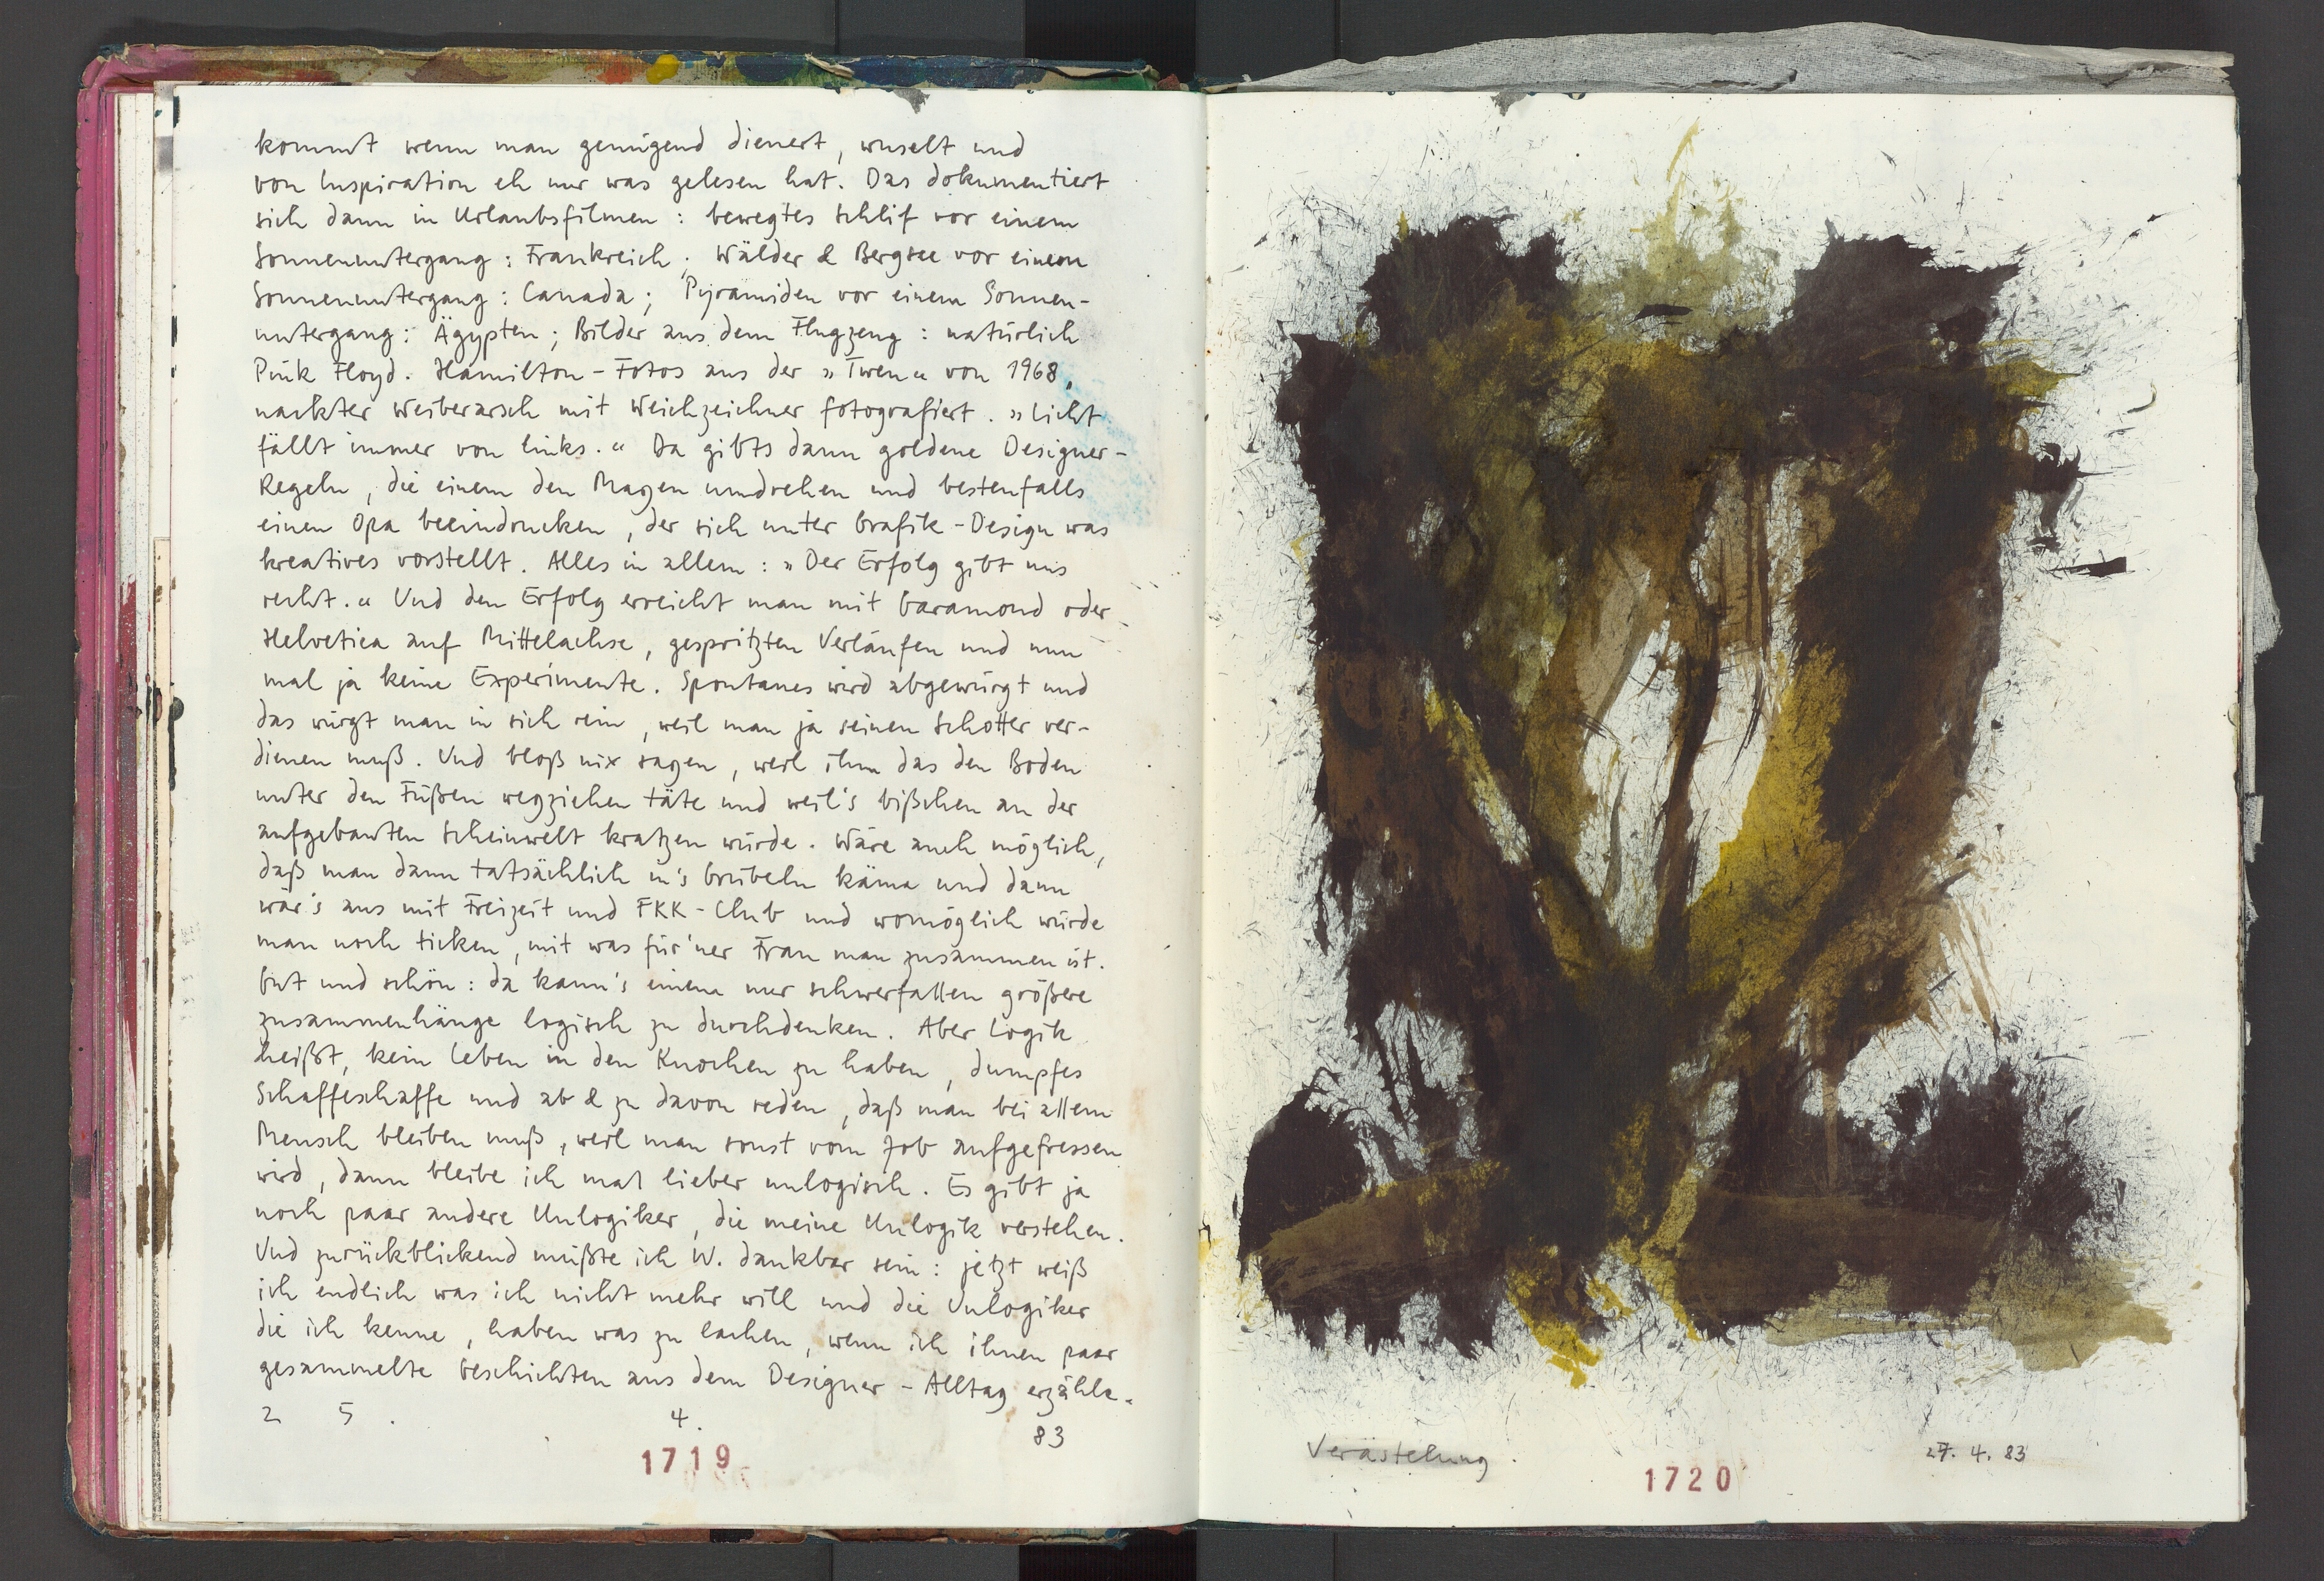 kommt wenn man genügend dienert, wuselt und
von Inspiration eh nur was gelesen hat. Das dokumentiert
sich dann in Urlaubsfilmen: bewegtes Schilf vor einem
Sonnenuntergang: Frankreich; Wälder & Bergsee vor einem
Sonnenuntergang: Canada; Pyramiden vor einem Sonnen-
untergang: Ägypten; Bilder aus dem Flugzeug: natürlich
Pink Floyd. Hamilton-Fotos aus der »Twen« von 1968,
nackter Weiberarsch mit Weichzeichner fotografiert. »Licht
fällt immer von links.« Da gibts dann goldene Designer-
Regeln, die einem den Magen umdrehen und bestenfalls
einen Opa beeindrucken, der sich unter Grafik-Design was
kreatives vorstellt. Alles in allem: »Der Erfolg gibt uns
recht.« Und den Erfolg erreicht man mit Garamond oder
Helvetica auf Mittelachse, gespritzten Verläufen und nun
mal ja keine Experimente. Spontanes wird abgewürgt und
das würgt man in sich rein, weil man ja seinen Schotter ver-
dienen muß. Und bloß nix sagen, weil ihm das den Boden
unter den Füßen wegziehen täte und weil's bißchen an der
aufgebauten Scheinwelt kratzen würde. Wäre auch möglich,
daß man dann tatsächlich in's Grübeln käme und dann
wär's aus mit Freizeit und FKK-Club und womöglich würde
man noch ticken, mit was für'ner Frau man zusammen ist.
Gut und schön: da kann's einem nur schwerfallen größere
Zusammenhänge logisch zu durchdenken. Aber Logik
heißt, kein Leben in den Knochen zu haben, dumpfes
Schaffeschaffe und ab & zu davon reden, daß man bei allem
Mensch bleiben muß, weil man sonst vom Job aufgefressen
wird, dann bleibe ich mal lieber unlogisch. Es gibt ja
noch paar andere Unlogiker, die meine Unlogik verstehen.
Und zurückblickend müßte ich W. dankbar sein: jetzt weiß
ich endlich was ich nicht mehr will und die Unlogiker
die ich kenne, haben was zu lachen, wenn ich ihnen paar
gesammelte Geschichten aus dem Designer-Alltag erzähle.
25. 4. 83
1719
Verästelung. 27. 4. 83
1720